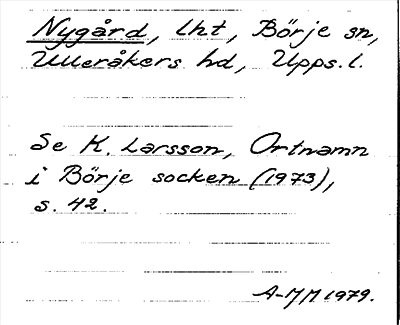 Nygård, lht, Börje sn,
Ulleråkers hd, Upps.l.
Se K. Larsson, Ortnamn
i Börje socken (1973),
s. 42.
A-MM 1979.